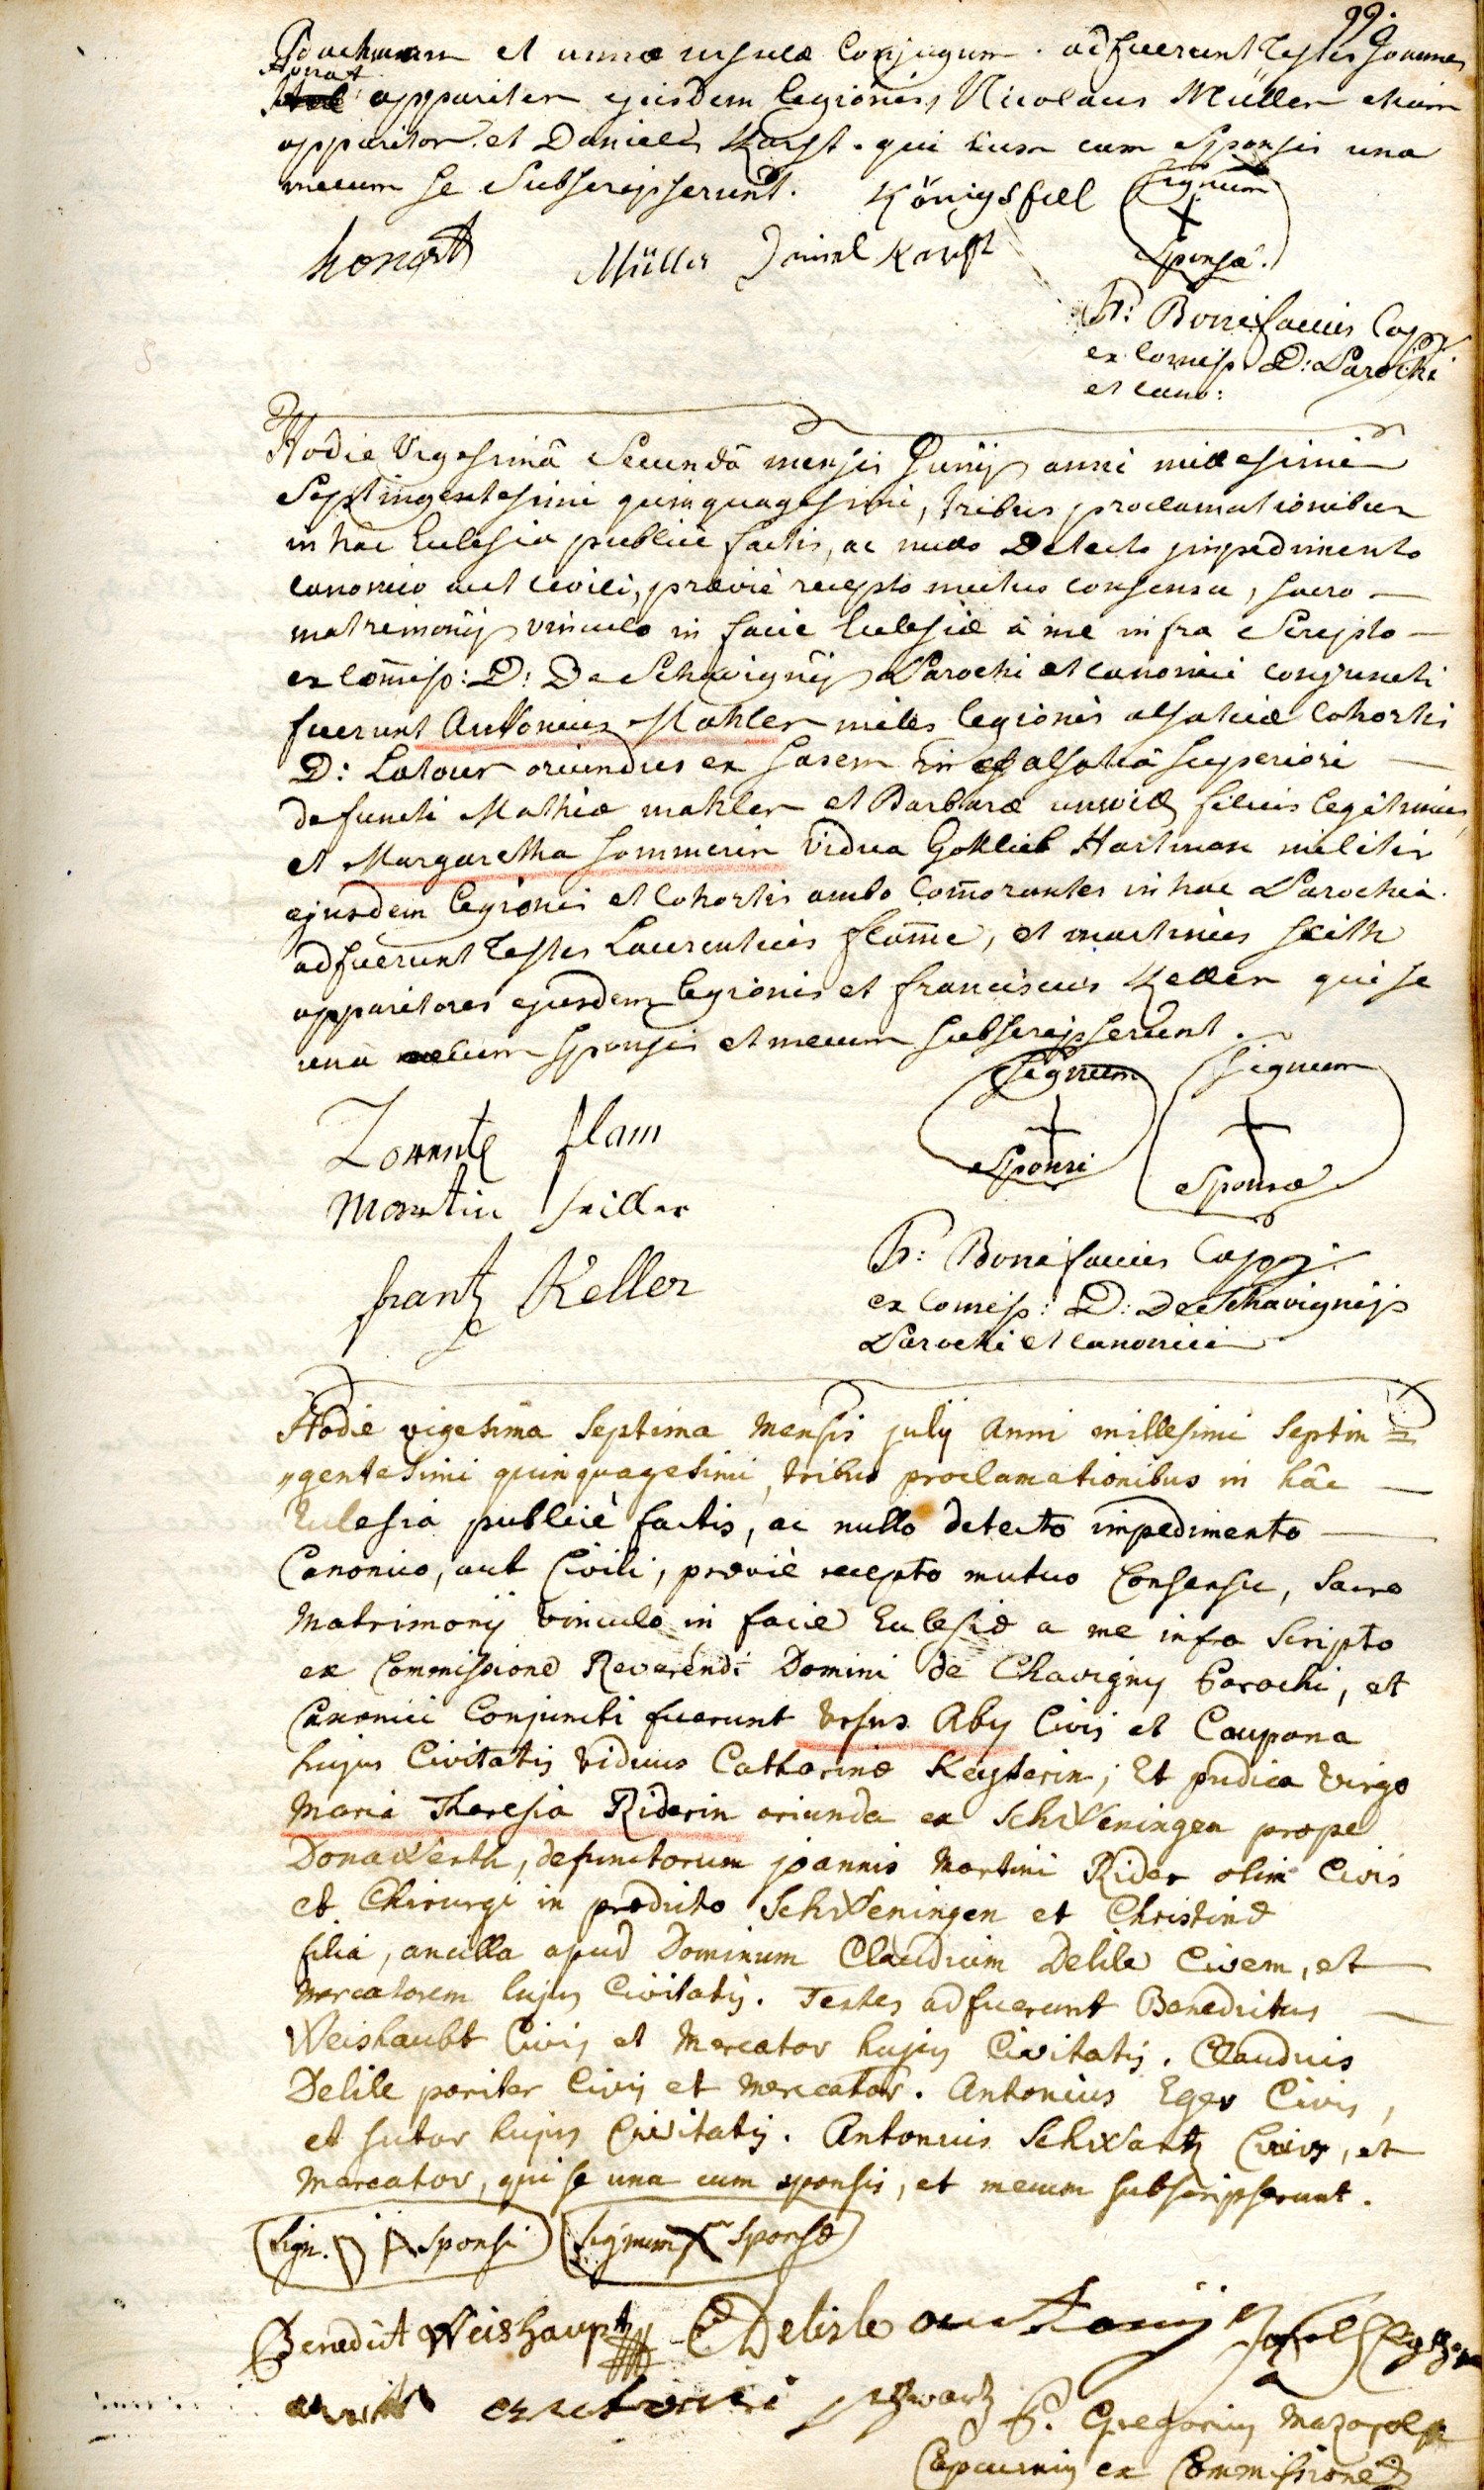 99.
et annæ ursulæ Conjugum. adfuerunt Testes Joannes
Honat apparitor ejusdem legionis, Nicolaus Müller etiam
apparitor et Daniel Karst. qui tum cum Sponsis una
mecum se Subscripserunt. Königsfell Signum
X
Sponsæ.
honart Müller Daniel Karst
Fr: Bonifacius Capp:
ex Comiss D: Parochi
et Cano:
Hodie Vigesimâ Secundâ mensis Junij anni millesimi
Septingentesimi quinquagesimi, tribus proclamationibus
in hac Eclesia publicè factis, ac nullo Detecto jmpedimento
canonico aut civili, præviè recepto mutuo consensu, sacro
matrimonij vinculo in facie Eclesiæ â me infra Scripto
ex Com̄iss: D: De Schavignij Parochi et canonici conjuncti
fuerunt Antonius Mahler miles legionis alsatiæ Cohortis
D: Latour oriundus ex Sasem in alsatiâ superiori
defuncti Mathiæ mahler et Barbaræ filius legitimus,
et Margaretha Sommerin Vidua Gottlieb Hartman militis
ejusdem legionis et Cohortis ambo Com̄orantes in hac Parochia.
adfuerunt Testes Laurentius flam̄e, et martinus
apparitores ejusdem legionis et franciscus Keller qui se
una cum sponsis et mecum subscripserunt.
Signum Signum
Lorentz flam
Sponsi Sponsæ
Martin
frantz Keller
Fr: Bonifacius Capp:
ex Comiss: D: De Schavignijs
Parochi et canonici
Hodie vigesima Septima Mensis julij Anni millesimi Septin=
gentesimi quinquagesimi, tribus proclamationibus in hâc
Eclesia publicè factis, ac nullo detecto impedimento
Canonico, aut Civili, præviè recepto mutuo Consensu, Sacro
Matrimonij vinculo in facie Eclesiæ a me infra Scripto
ex Commissione Reverendi Domini de Chavigny Parochi, et
Canonici Conjuncti fuerunt Ursus Aby Civis et Caupona
hujus Civitatis Viduus Catharinæ Keysterin; Et pudica Virgo
Maria Theresia Riderin oriunda ex SchWeningen prope
DonaWerth, defunctorum joannis Martini Rider olim Civis
et Chirurgi in prædicto SchWeningen et Christinæ
filia, ancilla apud Dominum Claudium Delile Civem, et
Mercatorem hujus Civitatis. Testes adfuerunt Benedictus
Weishaubt Civis et Mercator hujus Civitatis. Claudius
Delile pariter Civis et Mercator. Antonius Eger Civis,
et sutor hujus Civitatis. Antonius SchWartz Civis, et
Mercator, qui se una cum sponsis, et mecum subscripserunt.
Sign. Sponsi Signum X Sponsæ
Benedict Weishaupt CDelisle
schwartz P. Gregorius
Capucinus ex Commissione